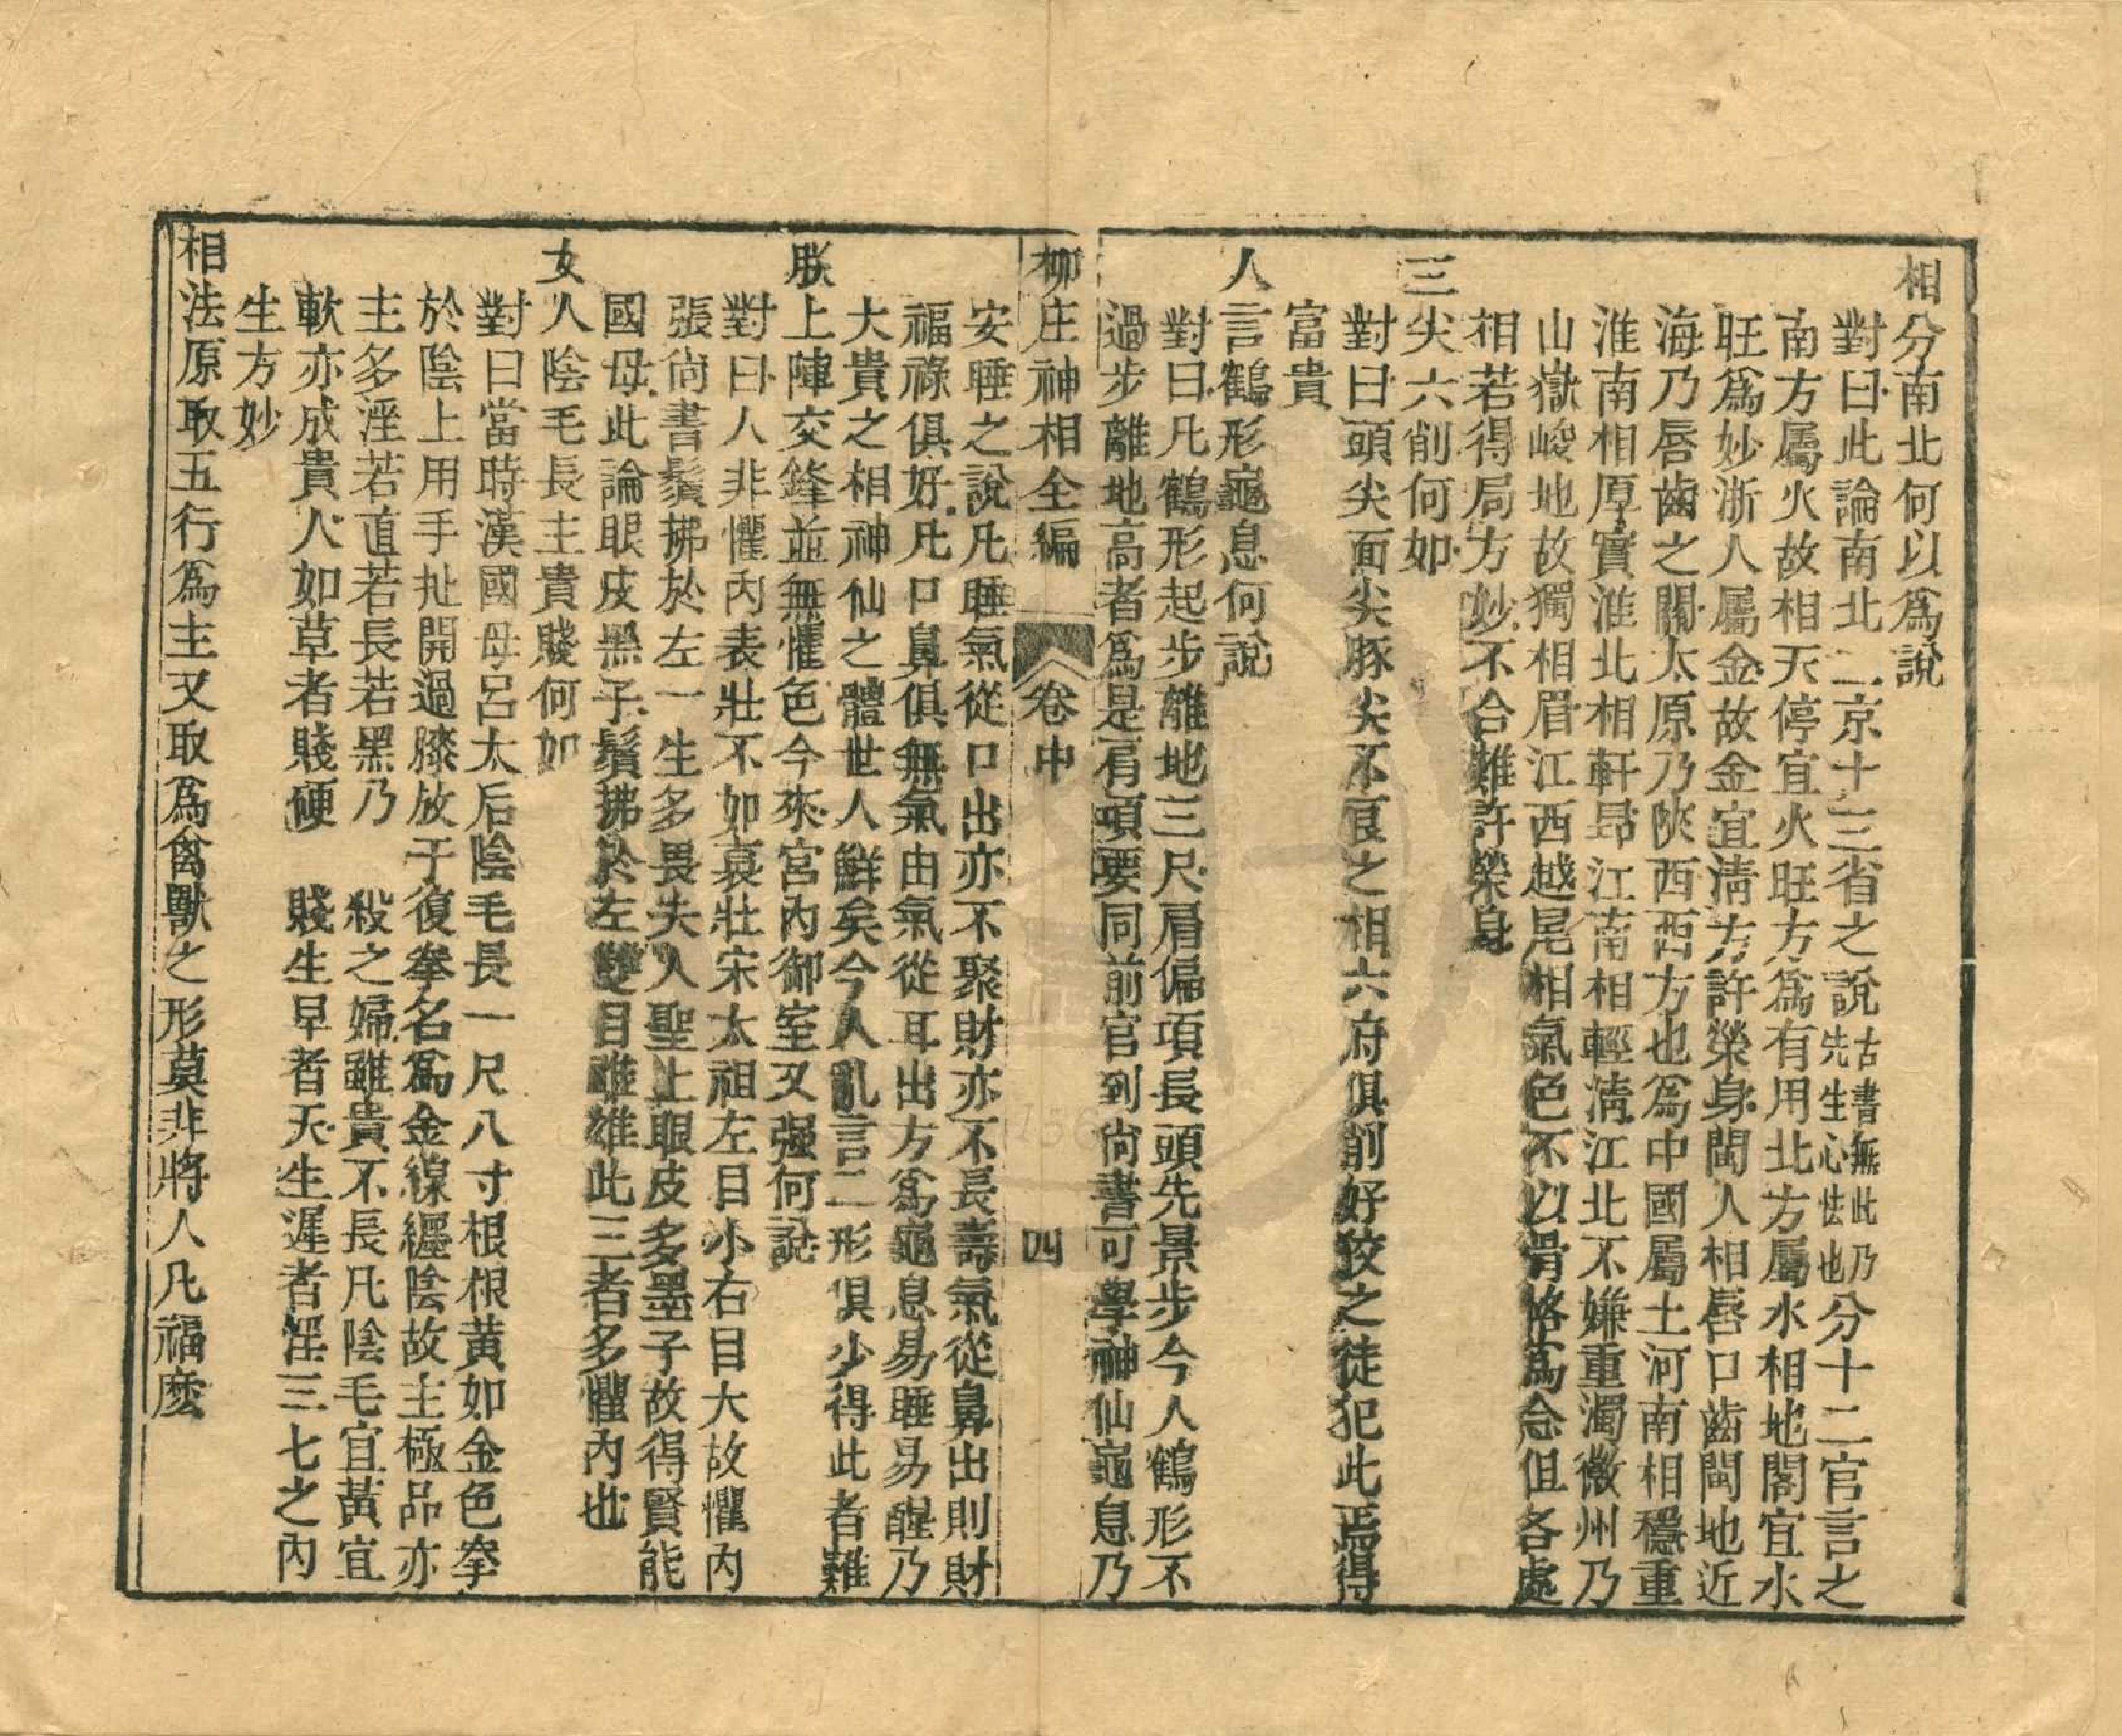 相分南北何以爲說
對曰此論南北二京十三省之說古書無此乃先生心怯也分十二官言之
南方屬火故相天停宜火旺方爲有用北方屬水相地閣宜水
旺爲妙浙人屬金故金宜淸方許榮身閩人相唇口齒閩地近
海乃唇齒之關太原乃陝西西方也爲中國屬土河南相穩重
淮南相厚實淮北相軒昻江南相輕淸江北不嫌重濁徽州乃
山嶽峻地故獨相眉江西越尾相氣色不以骨格爲念但各處
相若得局方妙不合難許榮身
三尖六削何如
對曰頭尖面尖豚尖不良之相六府俱削奸狡之徒犯此焉得
富貴
人言鶴形龜息何說
對曰凡鶴形起步離地三尺肩偏項長頭先景步今人鶴形不
過步離地高者爲是肩項要同前官到尙書可學神仙龜息乃
柳庄神相全編 卷中 四
安睡之說凡睡氣從口出亦不聚財亦不長壽氣從鼻出則財
福祿俱好凡口鼻俱無氣由氣從耳出方爲龜息易睡易醒乃
大貴之相神仙之體世人鮮矣今人亂言二形俱少得此者難
朕上陣交鋒並無懼色今來宮內御室又强何說
對曰人非懼內表壯不如裏壯宋太祖左目小右目大故懼內
張尙書鬚拂於左一生多畏夫人聖上眼皮多墨子故得賢能
國母此論眼皮黑子鬚拂於左雙目雌雄此三者多懼內也
女人陰毛長主貴賤何如
對曰當時漢國母呂太后陰毛長一尺八寸根根黃如金色拳
於陰上用手扯開過膝放于復拳名爲金線纏陰故主極品亦
主多淫若直若長若黑乃 殺之婦雖貴不長凡陰毛宜黃宜
軟亦成貴人如草者賤硬 賤生早者夭生遲者淫三七之內
生方妙
相法原取五行爲主又取爲禽獸之形莫非將人凡福麽